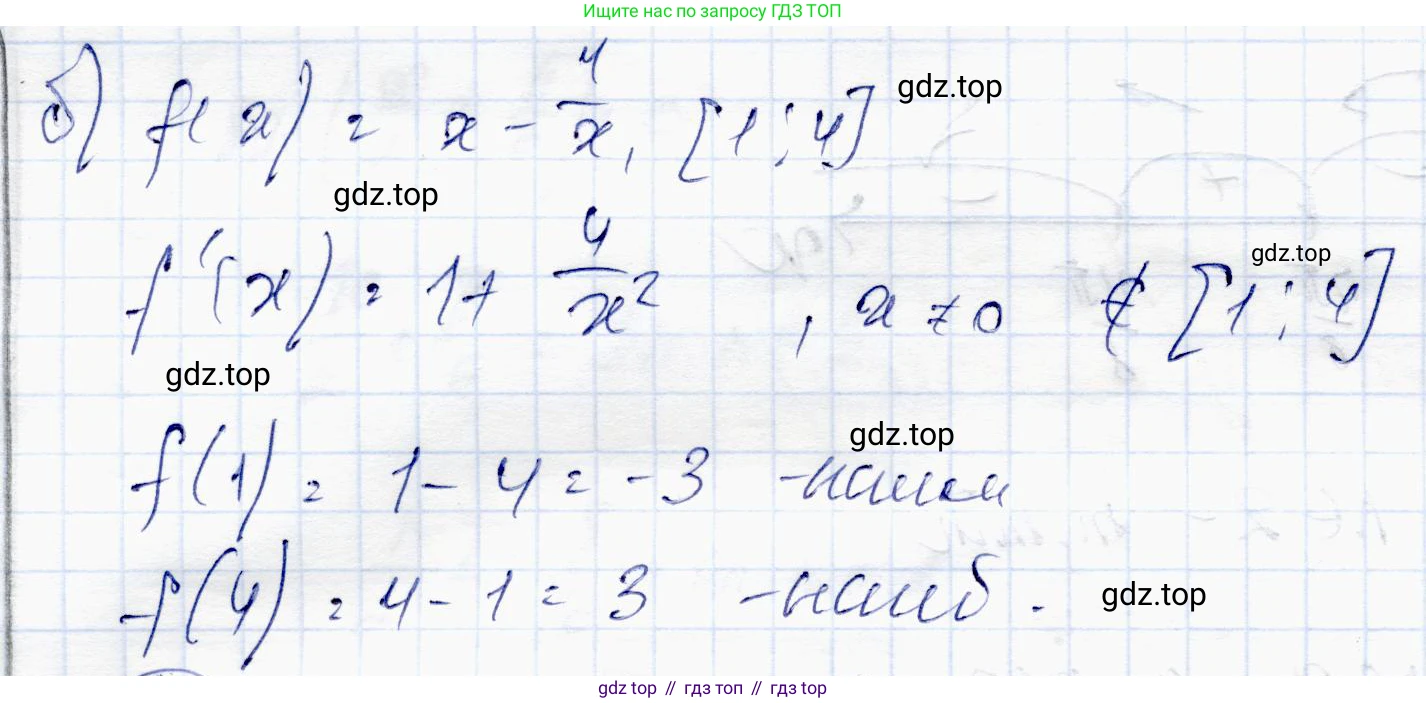 Ищите нас по запросу ГДЗ ТОП
б) f(x) = x - 4/x, [1; 4] gdz.top
gdz.top
f'(x) = 1 + 4/x², x ≠ 0 ∉ [1; 4] gdz.top
gdz.top
f(1) = 1 - 4 = -3 - наим gdz.top
f(4) = 4 - 1 = 3 - наиб. gdz.top
gdz top // гдз топ // gdz top